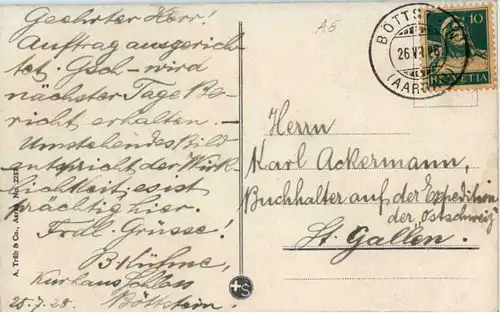 Geehrter Herr!
Auftrag ausgerich-
tet. Gsch- wird
nächster Tage Be-
richt erhalten. -
Umstehendes Bild
entspricht der Wirk-
lichkeit, es ist
prächtig hier.
Frdl. Grüsse!
B. Kühne,
Kurhaus Schloss
25.7.28. Böttstein.
A. Treib & Co., Aarau. No.
A5
BÖTTS
26.VII.28
(AARG
10
HELVETIA
Herrn
Karl Ackermann,
Buchhalter auf der Expedition
der Ostschweiz
St. Gallen.
S